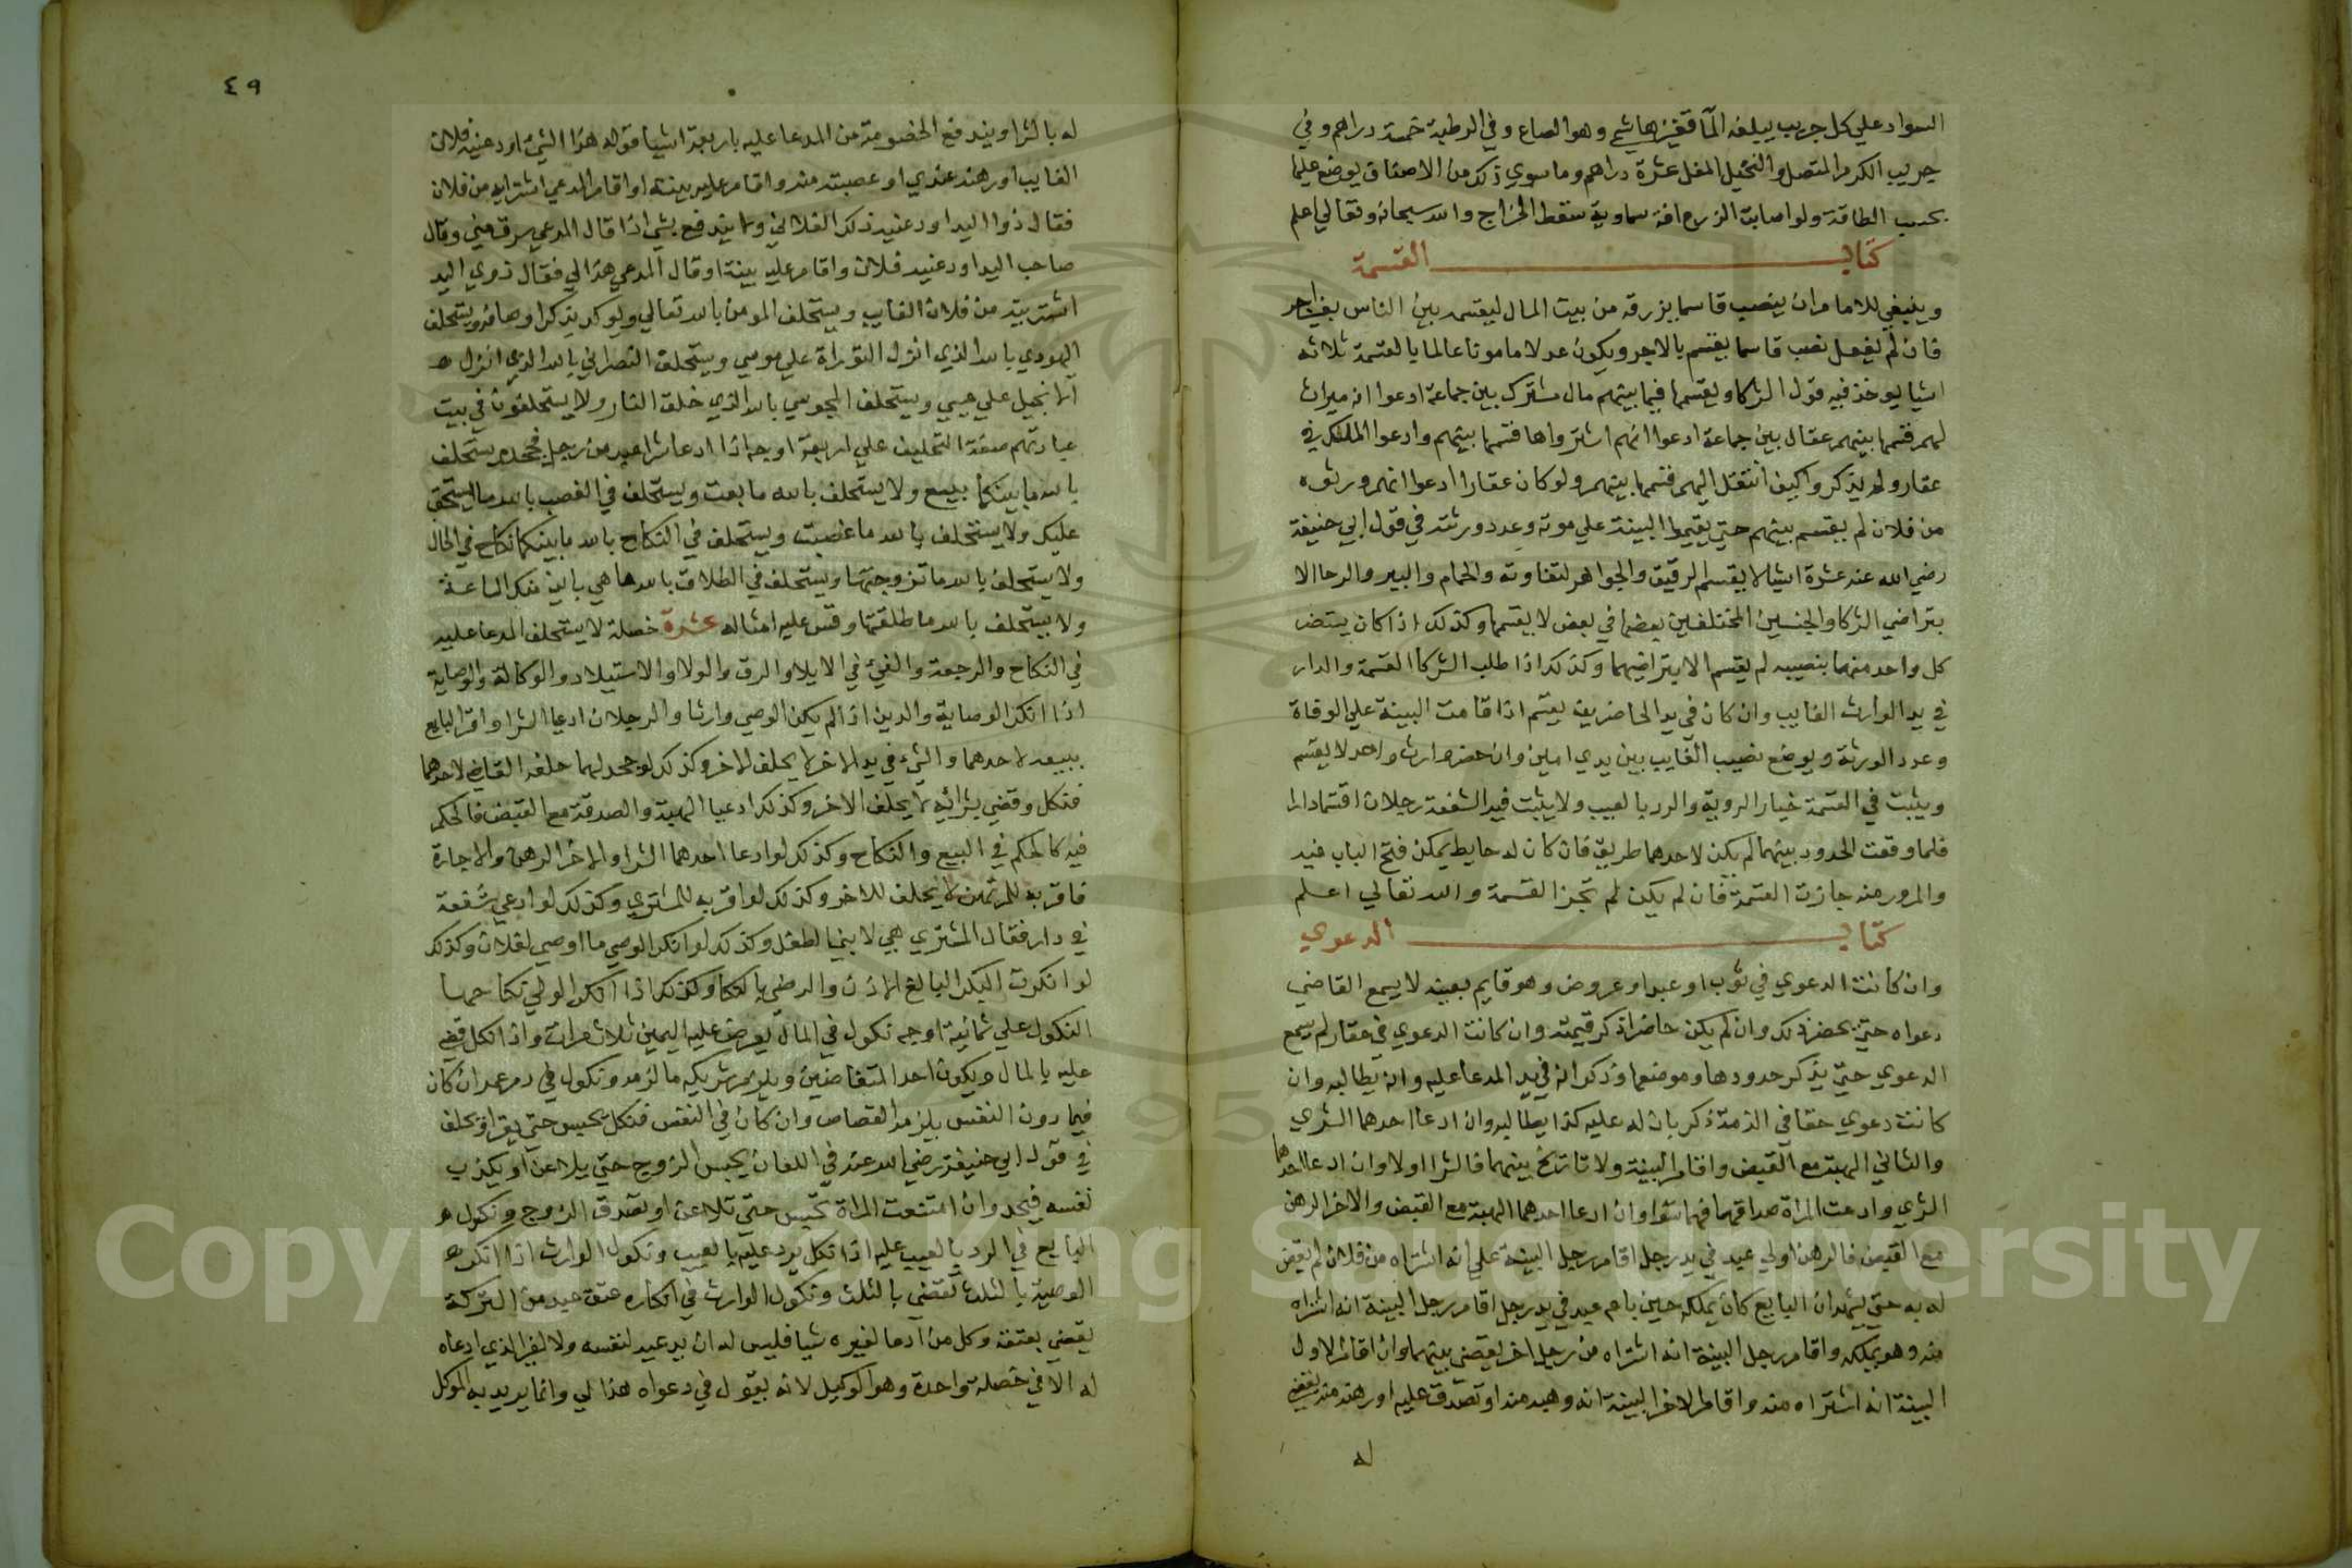 السواد علي كل جريب يبلغه الما قفيز هاشمي وهو الصاع وفي الرطبة خمسة دراهم وفي
جريب الكرم المتصل والنخيل المغل عشرة دراهم وما سوي ذلك من الاصناف يوضع عليها
بحسب الطاقة ولو اصابت الزرع افة سماوية سقط الخراج والله سبحانه وتعالي اعلم
كتاب القسمة
وينبغي للامام ان ينصب قاسما يزرقه من بيت المال ليقسم بين الناس بغير اجر
فان لم يفعل نصب قاسما يقسم بالاجر ويكون عدلا مامونا عالما بالقسمة ثلاثة
اشيا يوخذ فيه قول الشركا ويقسمها فيما بينهم مال مشترك بين جماعة ادعوا انه ميراث
لهم قسمها بينهم عقال بين جماعة ادعوا انهم اشتروها قسمها بينهم وادعوا الملك في
عقار ولم يذكروا كيف انتقل اليهم قسمها بينهم ولو كان عقارا ادعوا انهم ورثوه
من فلان لم يقسم بينهم حتي يقيموا البينة علي موته وعدد ورثته في قول ابي حنيفة
رضي الله عنه عشرة اشيا لا يقسم الرقيق والجواهر لتفاوته والحمام والبير والرحا الا
بتراضي الشركا والجنسين المختلفين بعضها في بعض لا يقسمها وكذلك اذا كان يستضر
كل واحد منهما بنصيبه لم يقسم الا بتراضيهما وكذلك اذا طلب الشركا القسمة والدار
في يد الوارث الغايب وان كان في يد الحاضرين يقسم اذا قامت البينة علي الوفاة
وعدد الورثة ويوضع نصيب الغايب بين يدي امين وان حضر وارث واحد لا يقسم
ويثبت في القسمة خيار الروية والرد بالعيب ولا يثبت فيه الشفعة رجلان اقتسما دارا
فلما وقعت الحدود بينهما لم يكن لاحدهما طريق فان كان له حايط يمكن فتح الباب فيه
والمرور منه جازت القسمة فان لم يكن لم تجز القسمة والله تعالي اعلم
كتاب الدعوي
وان كانت الدعوي في ثوب او عبد او عروض وهو قايم بعينه لا يسمع القاضي
دعواه حتي يحضر ذلك وان لم يكن حاضرا ذكر قيمته وان كانت الدعوي في عقار لم يسمع
الدعوي حتي يذكر حدودها وموضعها وذكر انه في يد المدعا عليه وانه يطالبه وان
كانت دعوي حقا في الذمة ذكر بان له عليه كذا يطالبه وان ادعا احدهما الشري
والثاني الهبة مع القبض واقام البينة ولا تاريخ بينهما فالشرا اولا وان ادعا احدهما
الشري وادعت المراة صداقهما فهما سوا وان ادعا احدهما الهبة مع القبض والاخر الرهن
مع القبض فالرهن اولي عبد في يد رجل اقام رجل البينة علي انه اشتراه من فلان لم يقض
له به حتي يشهد ان البايع كان يملكه حين باع عبد في يد رجل اقام رجل البينة انه اشتراه
منه وهو يملكه واقام رجل البينة انه اشتراه من رجل اخر يقضي بينهما وان اقام الاول
البينة انه اشتراه منه واقام الاخر البينة انه وهبه منه او تصدق عليه او رهنه منه يقضي
له
٤٩
له بالشرا ويندفع الخصومة من المدعا عليه باربعة اشيا قوله هذا الشي اودعنيه فلان
الغايب او رهنه عندي او غصبته منه واقام عليه بينة او اقام المدعي اشتراية من فلان
فقال ذوا اليد اودعنيه ذلك الفلاني ولا يندفع بشي اذا قال المدعي سرقه مني وقال
صاحب اليد اودعنيه فلان واقام عليه بينة او قال المدعي هذا لي فقال ذوي اليد
اشتريته من فلان الغايب ويستحلف المومن بالله تعالي ويوكد بذكر اوصافه ويستحلف
اليهودي بالله الذي انزل التوراة علي موسي ويستحلف النصراني بالله الذي انزل
الانجيل علي عيسي ويستحلف المجوسي بالله الذي خلق النار ولا يستحلفون في بيت
عبادتهم صفة التحليف علي اربعة اوجه اذا ادعا شرا عبد من رجل فجحده يستحلف
بالله ما بينكما بيع ولا يستحلف بالله ما بعت ويستحلف في الغصب بالله ما يستحق
عليك ولا يستحلف بالله ما غصبت ويستحلف في النكاح بالله ما بينكما نكاح في الحال
ولا يستحلف بالله ما تزوجتها ويستحلف في الطلاق بالله ما هي باين منك الساعة
ولا يستحلف بالله ما طلقتها وقس عليه امثاله عشرة خصلة لا يستحلف المدعا عليه
في النكاح والرجعة والفيء في الايلا والرق والولا والاستيلاد والوكالة والوصاية
اذا انكر الوصاية والدين اذا لم يكن الوصي وارثا والرجلان ادعيا الشرا واقر البايع
ببيعه لاحدهما والشيء في يد الاخر لا يحلف للاخر وكذلك لو جحد لهما حلفه القاضي لاحدهما
فنكل وقضي بشرائه لا يحلف الاخر وكذلك ادعيا الهبة والصدقة مع القبض فالحكم
فيه كالحكم في البيع والنكاح وكذلك لو ادعا احدهما الشرا والاخر الرهن والاجارة
فاقر به للمرتهن لا يحلف للاخر وكذلك لو اقر به للمشتري وكذلك لو ادعي شفعة
في دار فقال المشتري هي لابنها لطفل وكذلك لو انكر الوصي ما اوصي لفلان وكذلك
لو انكرت البكر البالغ الاذن والرضي بالنكاح وكذلك اذا انكر الولي نكاحها
النكول علي ثمانية اوجه نكول في المال يعرض عليه اليمين ثلاث مرات واذا نكل قضي
عليه بالمال ويكون احد المتفاضين ويلزم شريكه ما لزمه ونكول في دم عمد ان كان
فيما دون النفس يلزمه القصاص وان كان في النفس فنكل يحبس حتي يقر او يحلف
في قول ابي حنيفة رضي الله عنه في اللعان يحبس الزوج حتي يلاعن او يكذب
نفسه فيحد وان امتنعت المراة تحبس حتي تلاعن او تصدق الزوج ونكول
البايع في الرد بالعيب عليه اذا نكل يرد عليه بالعيب ونكول الوارث اذا انكر
الوصية بالثلث يقضي بالثلث ونكول الوارث في انكاره عتق عبد من التركة
يقضي بعتقه وكل من ادعا لغيره شيا فليس له ان يدعيه لنفسه ولا لغير الذي ادعاه
له الا في خصلة واحدة وهو الوكيل لانه يقول في دعواه هذا لي وانما يريد به الموكل
Copyright © King Saud University